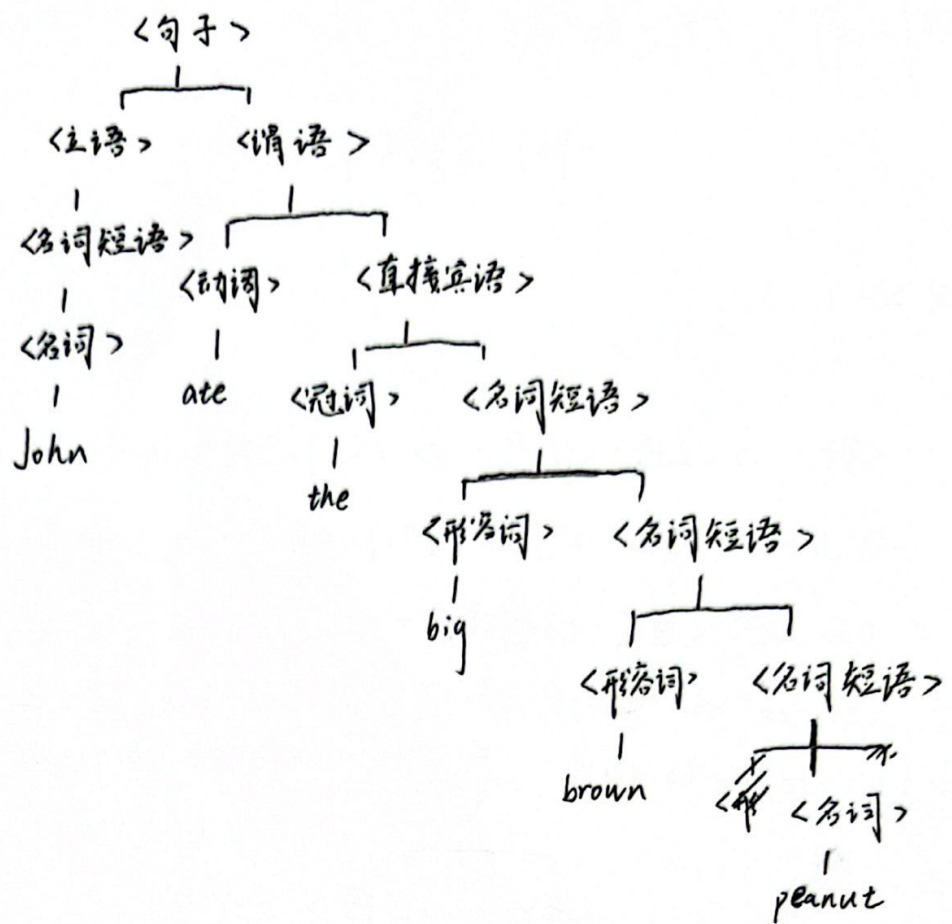 <句子>
<主语> <谓语>
<名词短语>
<动词> <直接宾语>
<名词>
ate <冠词> <名词短语>
John
the
<形容词> <名词短语>
big
<形容词> <名词短语>
brown <名词>
peanut